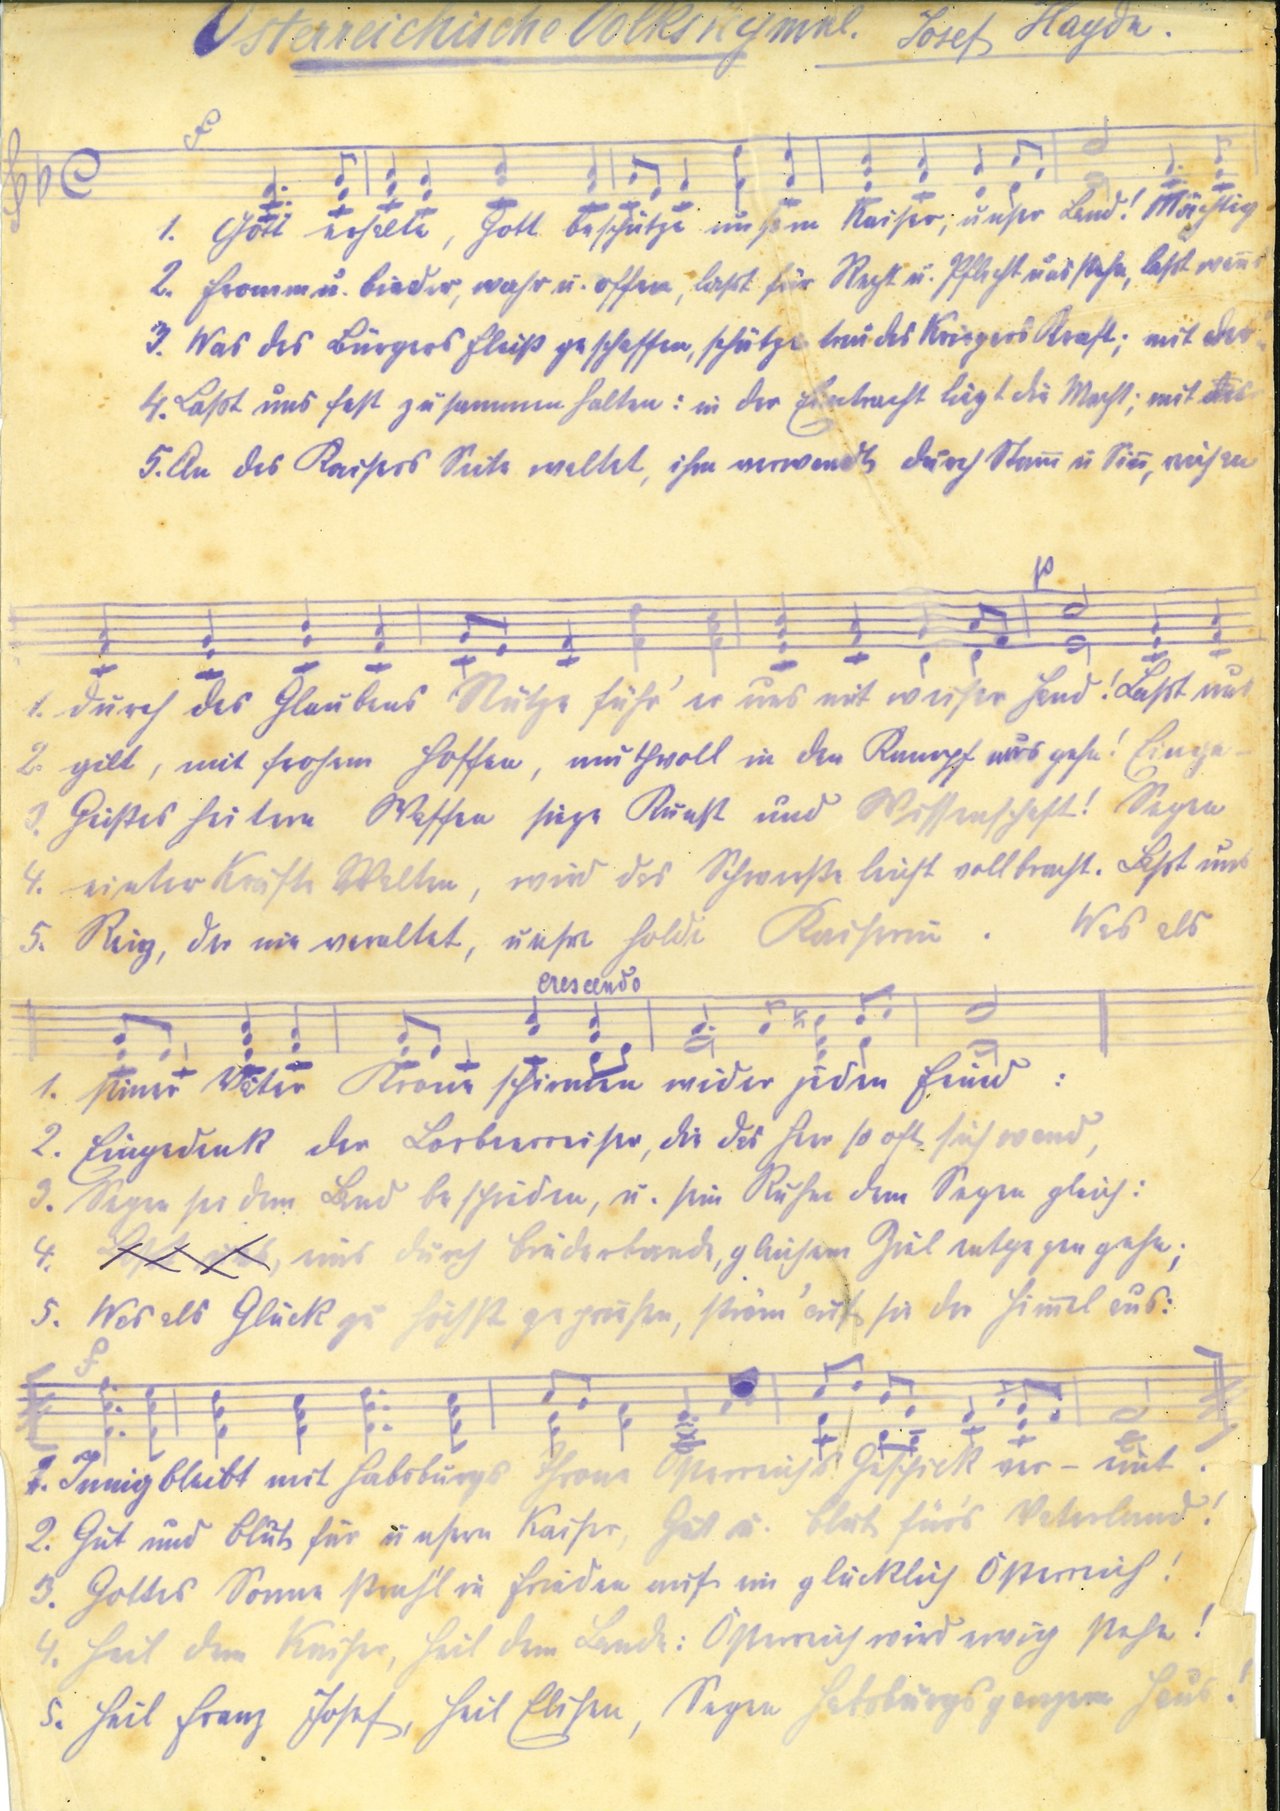 Österreichische Volkshymne. Josef Haydn.
f
1. Gott erhalte, Gott beschütze unsern Kaiser, unser Land! Mächtig
2. Fromm u. bieder, wahr u. offen, laßt für Recht u. Pflicht uns stehn, laßt wenns
3. Was des Bürgers Fleiß geschaffen, schütze treu des Kriegers Kraft; mit des
4. Laßt uns fest zusammen halten: in der Eintracht liegt die Macht; mit
5. An des Kaisers Seite waltet, ihm verwandt durch Stam̄ u Sin̄, reich an
p
1. durch des Glaubens Stütze führ' er uns mit weiser Hand! Laßt uns
2. gilt, mit frohem Hoffen, muthvoll in den Kampf uns gehn! Einge-
3. Geistes heitern Waffen siege Kunst und Wissenschaft! Segen
4. einter Kräfte Walten, wird das Schwerste leicht vollbracht. Laßt uns
5. Reiz, der nie veraltet, unsre holde Kaiserin. Was als
crescendo
1. seiner Väter Krone schirmen wider jeden Feind:
2. Eingedenk der Lorbeerreiser, die das Heer so oft sich wand,
3. Segen sei dem Land beschieden, u. sein Ruhm dem Segen gleich:
4. uns durch Brüderbande, gleichem Ziel entgegen gehn;
5. Was als Glück zu höchst gepriesen, ström' auf sie der Him̄el aus:
f
1. Innig bleibt mit Habsburgs Throne Österreichs Geschick ver- eint.
2. Gut und Blut für unsern Kaiser, Gut u. Blut für's Vaterland!
3. Gottes Sonne strahl' in Frieden auf ein glücklich Österreich!
4. Heil dem Kaiser, Heil dem Lande: Österreich wird ewig stehn!
5. Heil Franz Josef, Heil Elisen, Segen Habsburgs ganzem Haus!